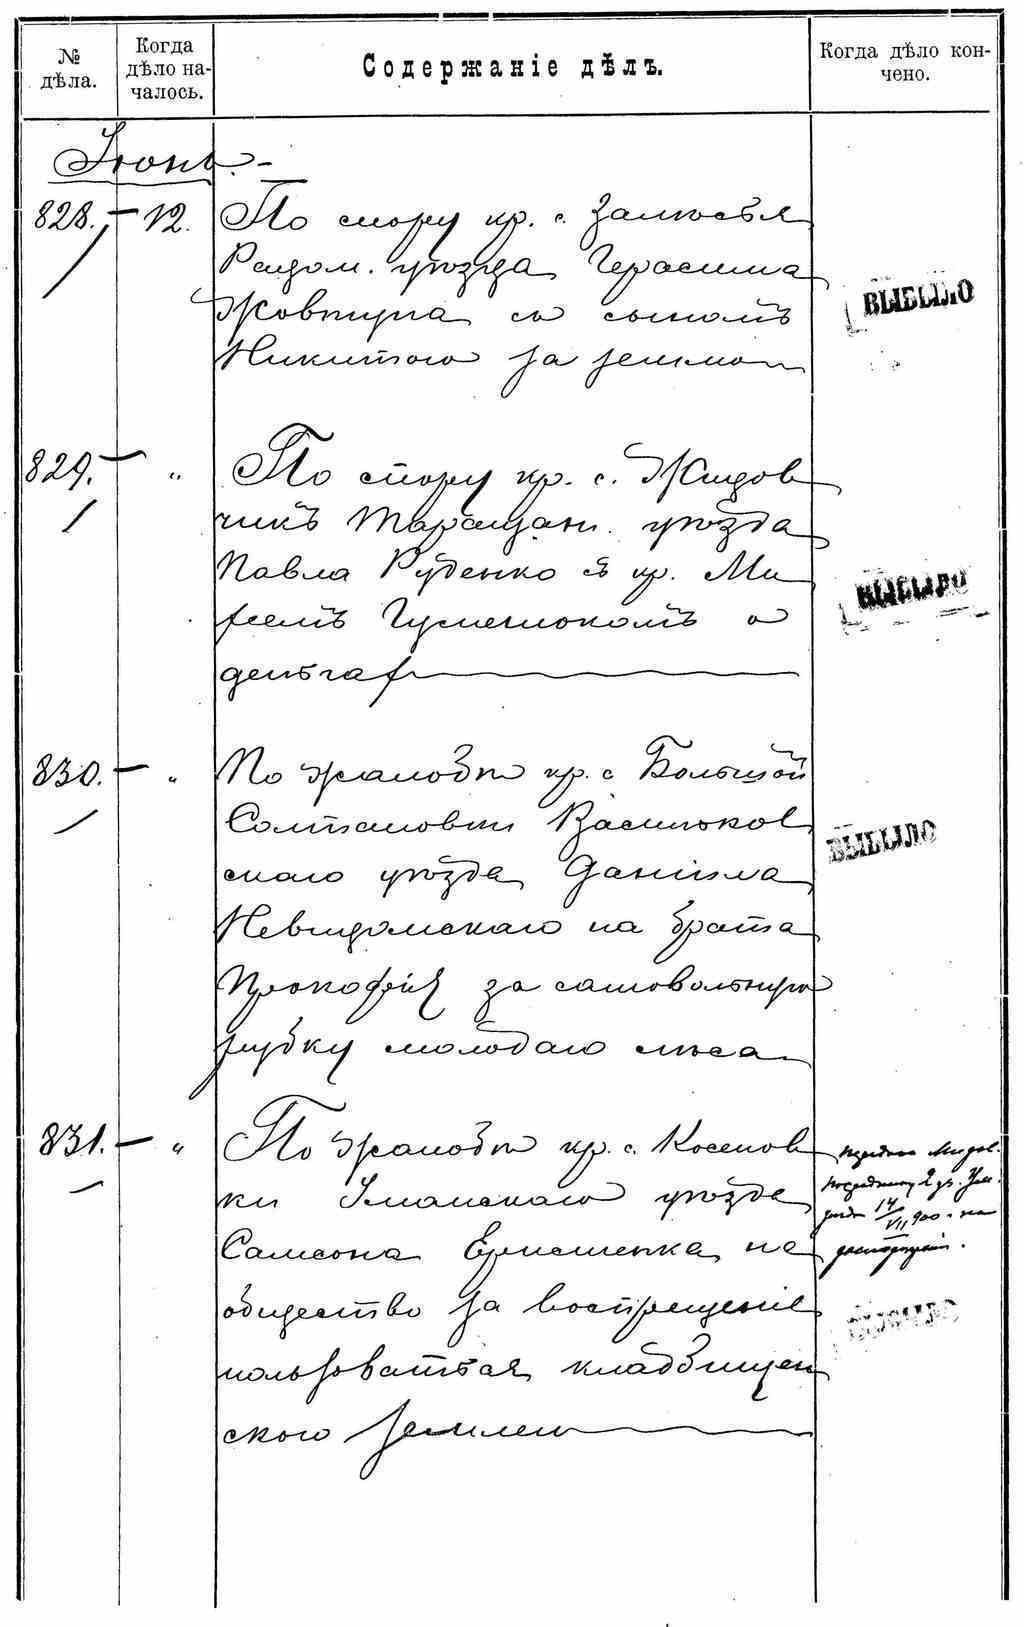 № дѣла.
Когда дѣло на-
чалось.
Содержаніе дѣлъ.
Когда дѣло кон-
чено.
Іюнь.
828. 12. По спору кр. с. Залѣсья
Радом. уѣзда Герасима
Жовтуга съ сыномъ
Никитою за землю
ВЫБЫЛО
829. " По спору кр. с. Жидов
чикъ Таращан. уѣзда
Павла Руденко съ кр. Ми
Гуменюкомъ о
деньгах
ВЫБЫЛО
830. " По жалобѣ кр. с. Большой
Солтановки Васильков
скаго уѣзда Даніила
Невидомскаго на брата
Прокофія за самовольную
рубку молодаго лѣса
ВЫБЫЛО
831. " По жалобѣ кр. с. Косенов
ки Уманскаго уѣзда
Самсона на
общество за воспрещеніе
пользоваться кладбищен
ского землею
Миров.
Посреднику 2 уч. Ум.
14/VII 900 на
распоряженіе.
ВЫБЫЛО